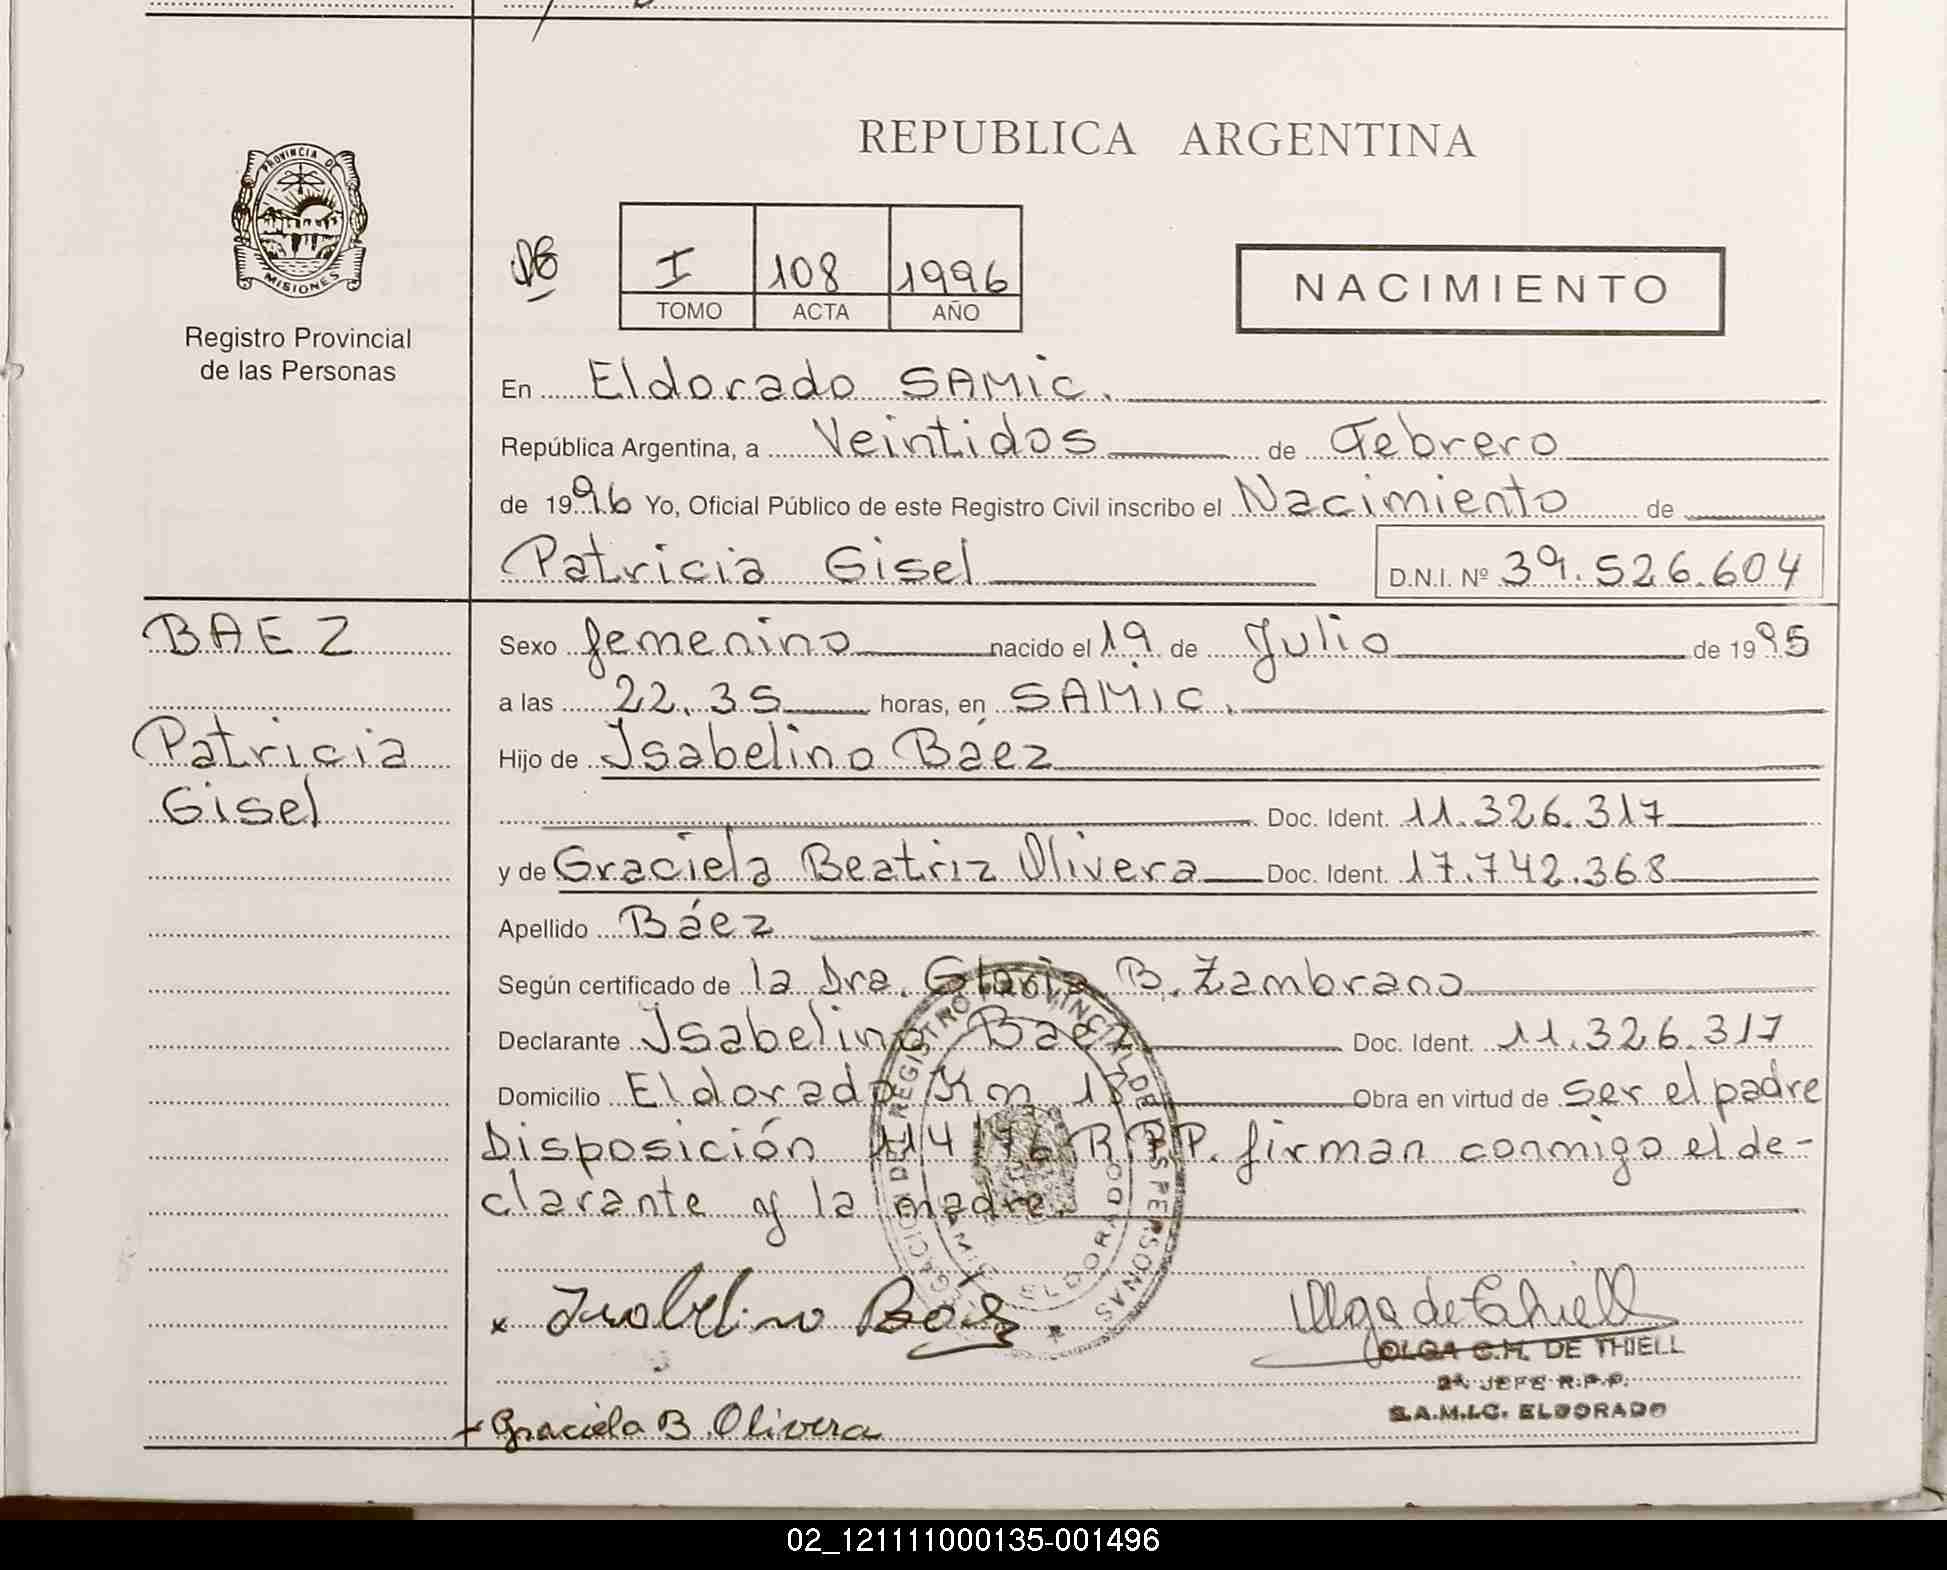 REPUBLICA ARGENTINA
PROVINCIA DE
MISIONES
Registro Provincial
de las Personas
I 108 1996
TOMO ACTA AÑO
NACIMIENTO
En Eldorado SAMIC.
República Argentina, a Veintidos de Febrero
de 1996 Yo, Oficial Público de este Registro Civil inscribo el Nacimiento de
Patricia Gisel D.N.I. Nº 39.526.604
BAEZ
Patricia
Gisel
Sexo femenino nacido el 19 de Julio de 1995
a las 22.35 horas, en SAMIC.
Hijo de Isabelino Báez
Doc. Ident. 11.326.317
y de Graciela Beatriz Olivera Doc. Ident. 17.742.368
Apellido Báez
Según certificado de la Dra. Gloria B. Zambrano
Declarante Isabelino Baez Doc. Ident. 11.326.317
Domicilio Eldorado Km Obra en virtud de ser el padre
Disposición 114/76 R.P.P. firman conmigo el de-
clarante y la madre.
REGISTRO PROVINCIAL DE LAS PERSONAS
ELDORADO
x Isabelino Baez
Olga de Thiell
OLGA C.H. DE THIELL
2ª JEFE R.P.P.
S.A.M.I.C. ELDORADO
Graciela B. Olivera
02_121111000135-001496